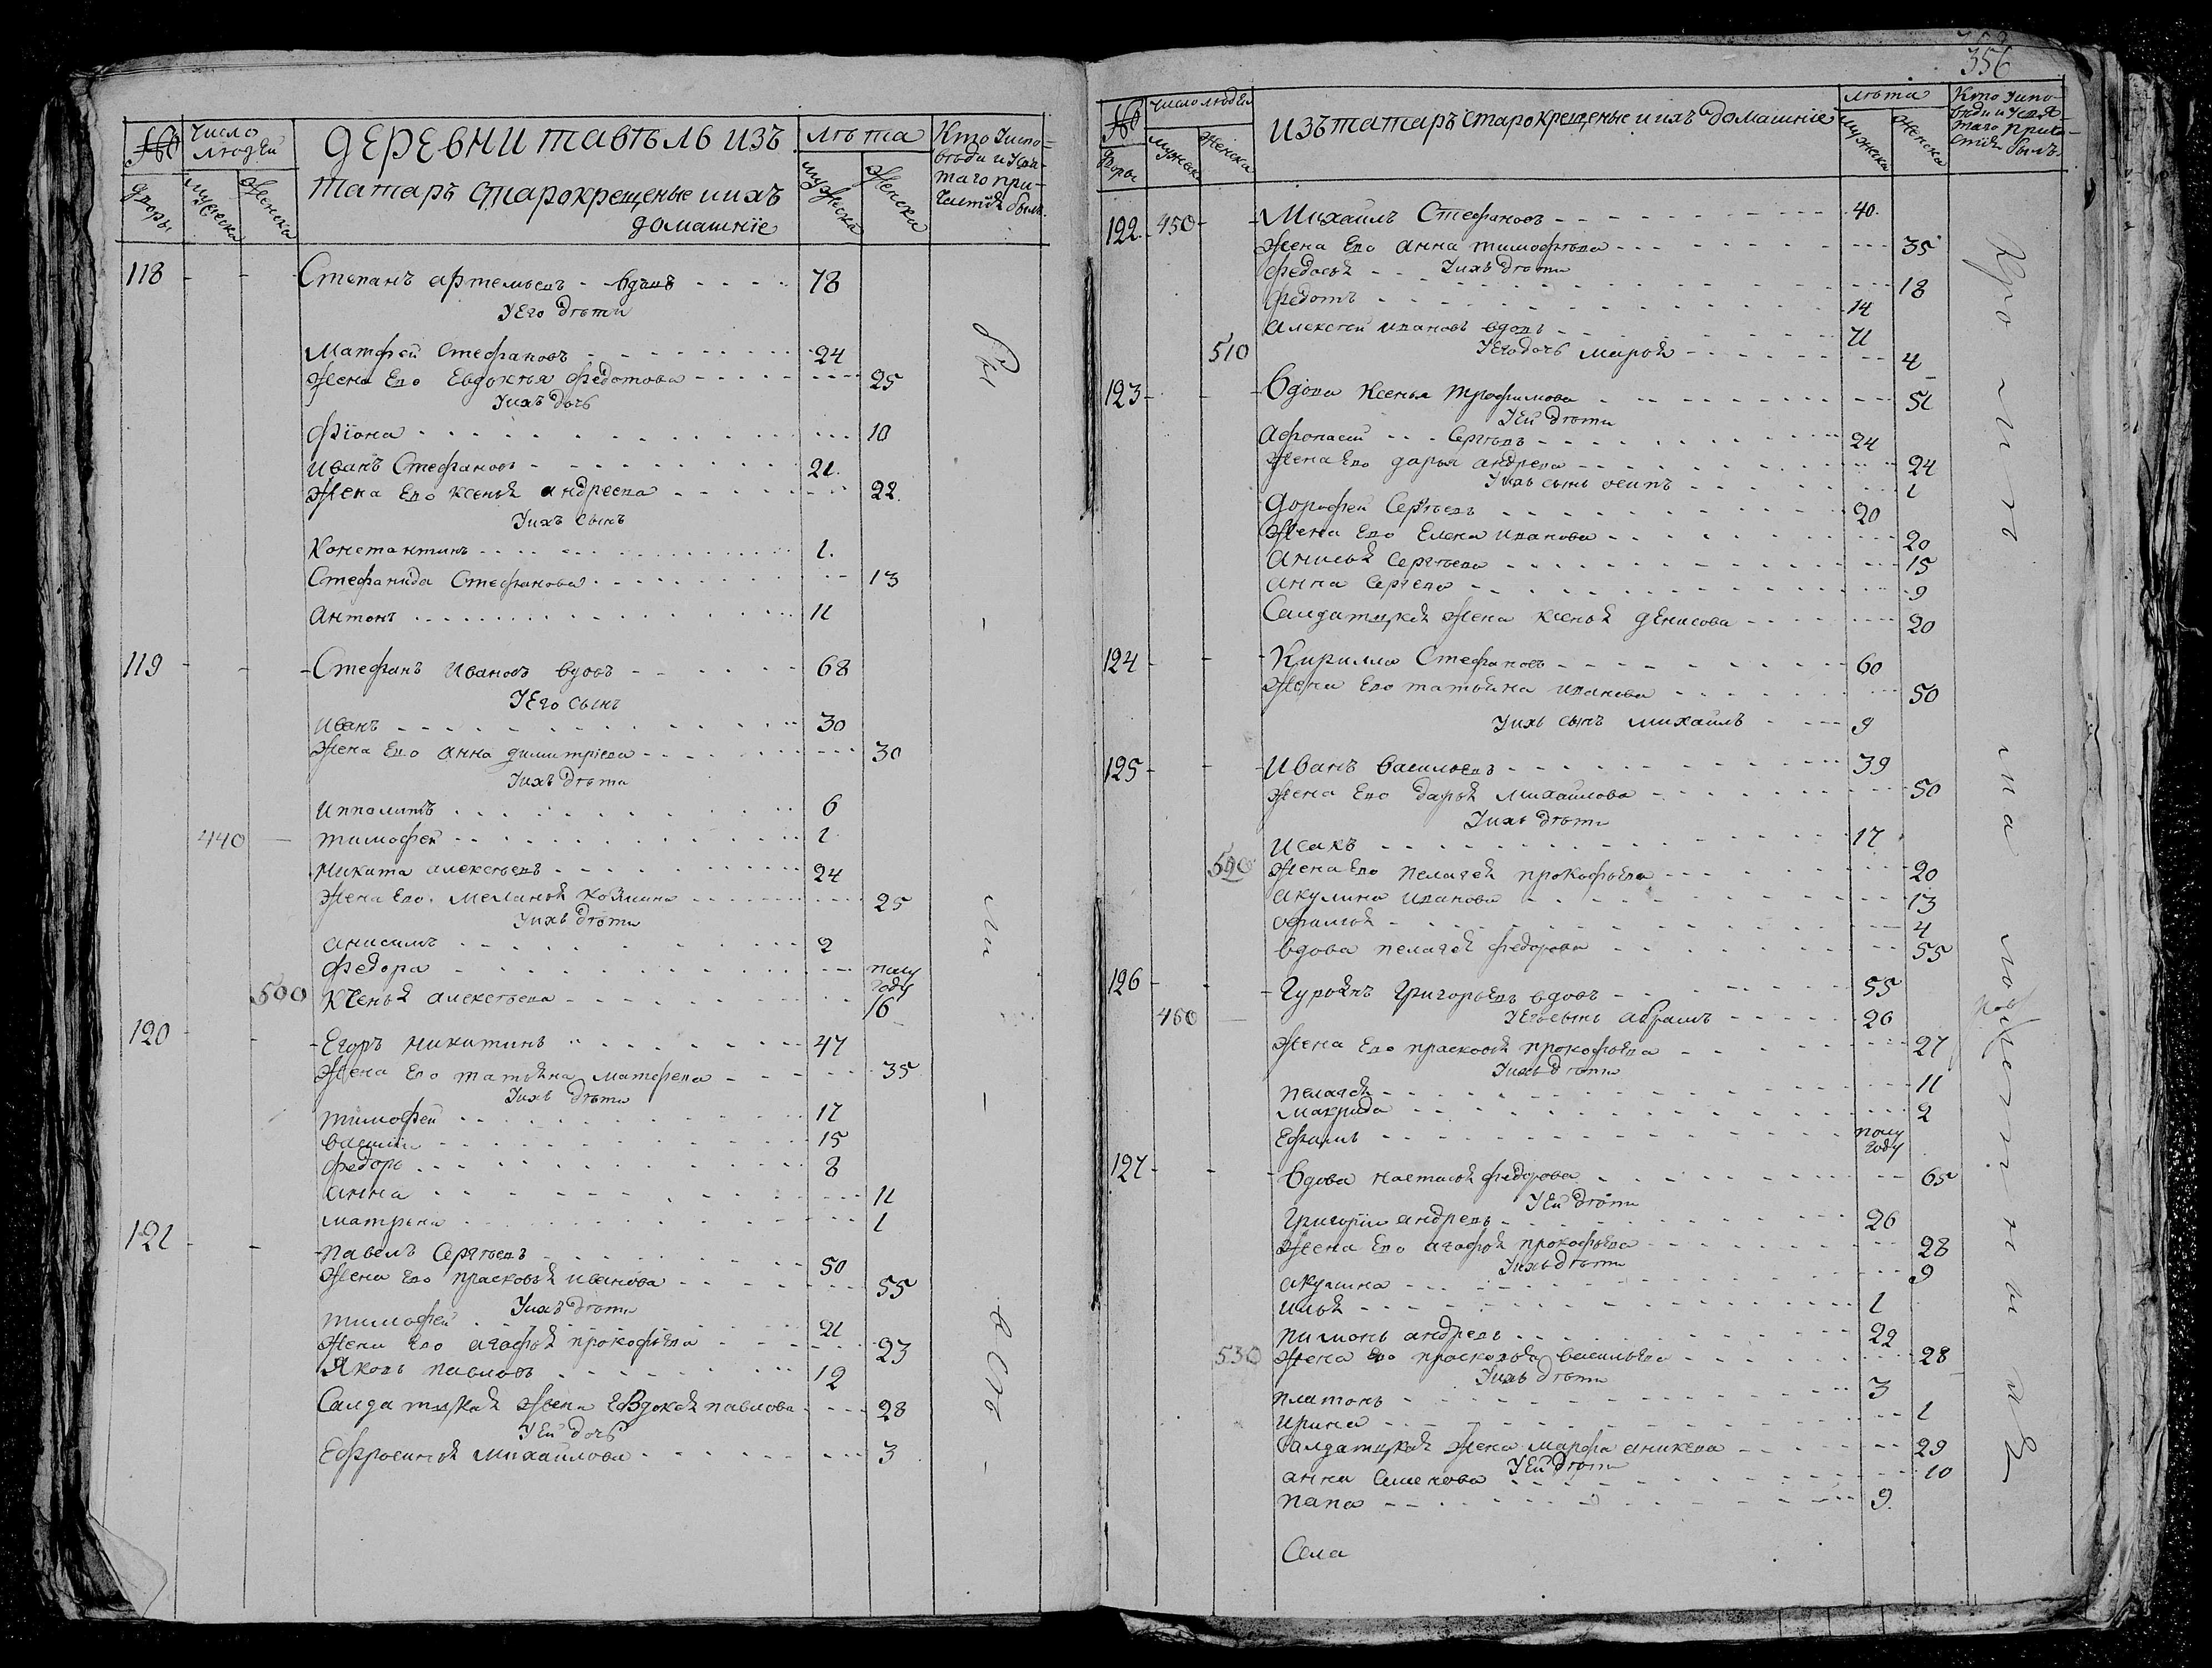 № Число людей ДЕРЕВНИ тавѣль изъ лѣта Кто Уиспо-
вѣди и Свя-
Дворы мужеска женска татаръ старокрещеные иихъ мужеска женска таго при-
частїя былъ.
домашнїе
118 - - Степанъ артемьевъ - вдовъ 78
УЕго дѣти
Матфей Стефановъ 24
Жена Его Евдокѣя федотова 25
Уихъ дочь
Фїона 10
Иванъ Стефановъ 21.
Жена Его ксенья андреева 22.
Уихъ сынъ
Константинъ 1.
Стефанида Стефанова 13
Антонъ 11
119 - - Стефанъ Ивановъ вдовъ 68
УЕго сынъ
Иванъ 30
Жена Его анна димитрїева 30
Уихъ дѣти
Ипполитъ 6
440 тимофей 1
Никита алексѣевъ 24
Жена Его меланья козмина 25
Уихъ дѣти
анисимъ 2
федора полу
году
500 Ксенья алексѣева 16
120 - - Егоръ никитинъ 47
Жена Его татьяна матфева 35
Уихъ дѣти
тимофей 17
василїи 15
федоръ 8
анна 11
матрена 1
121 - - павелъ Сергѣевъ 50
Жена Его прасковья иванова 55
Уихъ дѣти
тимофей 21
Жена Его агафья прокофьева 23
Яковъ павловъ 12
Салдатцкая жена Евдокея павлова 28
УЕй дочь
Ефросинья михаилова 3
356
№ число людей изъ татаръ старокрещеные иихъ домашнїе лѣта Кто Уиспо-
вѣди и Свя-
Дворы мужеска женска мужеска женска таго прича-
стїя былъ.
122 450 - Михаилъ Стефановъ 40.
Жена Его анна тимофѣева 35
Уихъ дѣти
федосья 18
федотъ 14
алексѣй ивановъ вдовъ 71
510 УЕго дочь марья 4
123 - - Вдова Ксенья трофимова 51
УЕй дѣти
Афонасей Сергѣевъ 24
Жена Его дарья андрева 24
Уихъ сынъ осипъ 1
Дорофей Сергѣевъ 20
Жена Его Елена иванова 20
Анисья Сергѣева 15
анна Сергева 9
Салдатцкая жена ксенья денисова 20
124 - - Кирилла Стефановъ 60
Жена Его татьяна иванова 50
Уихъ сынъ михаилъ 9
125 - - Иванъ Васильевъ 39
Жена Его дарья михаилова 50
Уихъ дѣти
Исакъ 17
520 Жена Его пелагея прокофьева 20
акулина иванова 13
офимья 4
вдова пелагея федорова 55
126 - - Гурьянъ Григорьевъ вдовъ 55
460 УЕго сынъ абрамъ 26
Жена Его прасковья прокофьева 27
Уихъ дѣти
пелагея 11
макрида 2
Ефимъ полу
году
127 - - Вдова настасья федорова 65
УЕй дѣти
Григорїи андревъ 26
Жена Его агафья прокофьева 28
Уихъ дѣти
акулина 9
илья 1
пимонъ андревъ 22
530 Жена Его прасковья васильева 28
Уихъ дѣти
платонъ 3
ирина 1
Салдатцкая жена марфа аникева 29
УЕй дѣти
анна 10
9.
Села